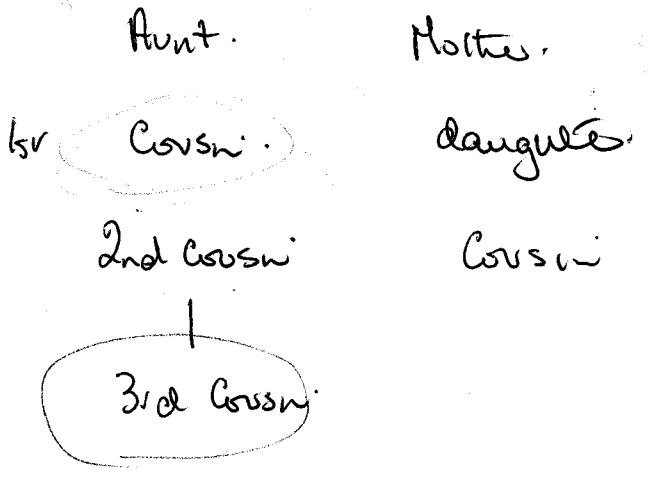 Aunt. Mother.
1st Cousin. daughter.
2nd Cousin Cousin
3rd Cousin.